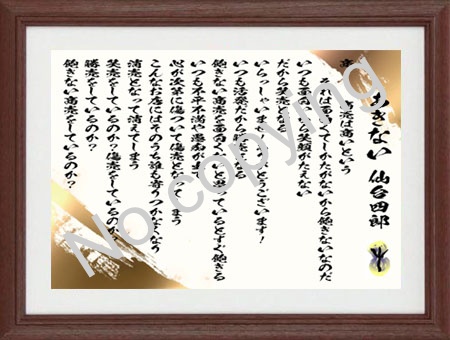 あきない 仙台四郎
売は商いという
それは面白くてしかたがないから飽きないなのだ
いつも面白いから笑顔がたえない
だから笑売となる
いらっしゃいませ とうございます！
いつも活発だから勝売となる
飽きない商売を面白くないと思っているとすぐ飽きる
いつも不平不満や愚痴が
心が次第に傷ついて傷売となってしまう
こんなお店にはそのうち誰も寄りつかなくなり
消売となって消えてしまう
笑売をしているのか？傷売をしているのか？
勝売をしているのか？
飽きない商売をしているのか？
No copying